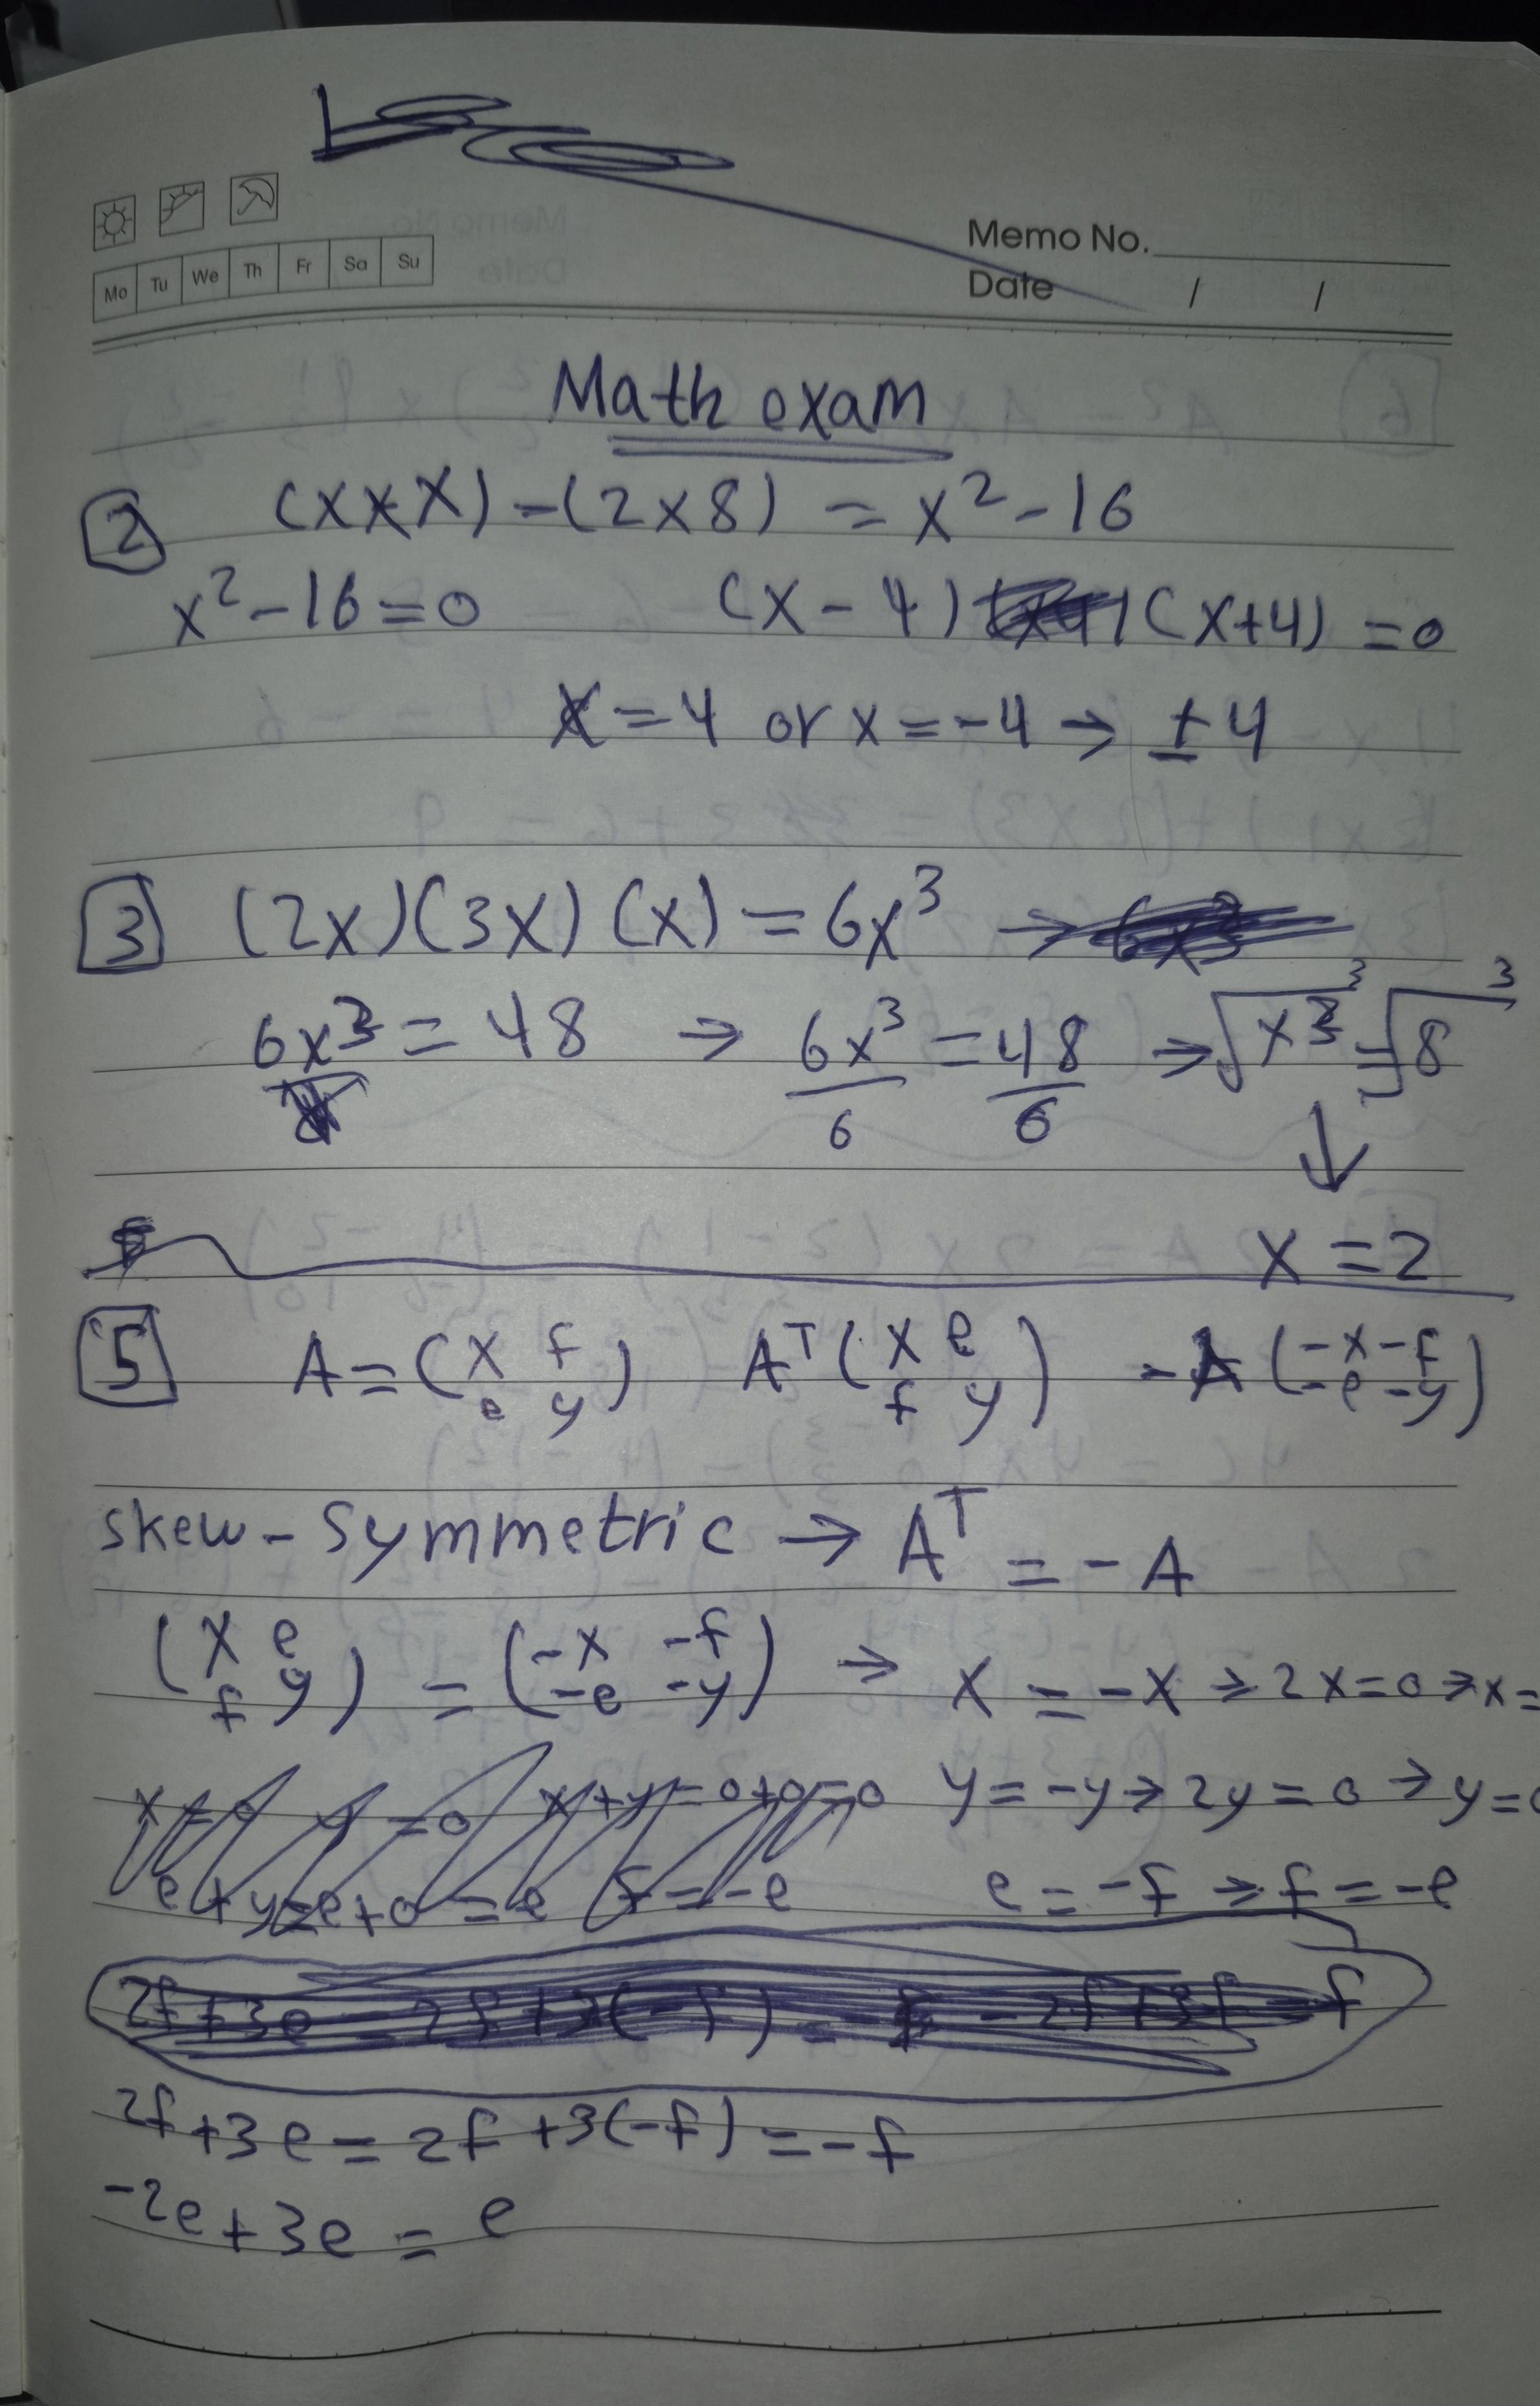 Mo Tu We Th Fr Sa Su
Memo No.
Date / /
Math exam
2 (x×x)-(2×8) = x²-16
x²-16=0 (x-4) (x+4) =0
x=4 or x=-4 → ±4
3 (2x)(3x)(x) = 6x³ →
6x³ = 48 → 6x³/6 = 48/6 → √x³ ³ = √8 ³
↓
x=2
5 A = (x f
e y) Aᵀ (x e
f y) -A (-x -f
-e -y)
skew-symmetric → Aᵀ = -A
(x e
f y) = (-x -f
-e -y) → x = -x → 2x=0 → x=
x=0 y=0 x+y=0+0=0 y=-y → 2y=0 → y=0
e+y=e+0=e f=-e e=-f → f=-e
2f+3e = 2f+3(-f) = -f
-2e+3e = e